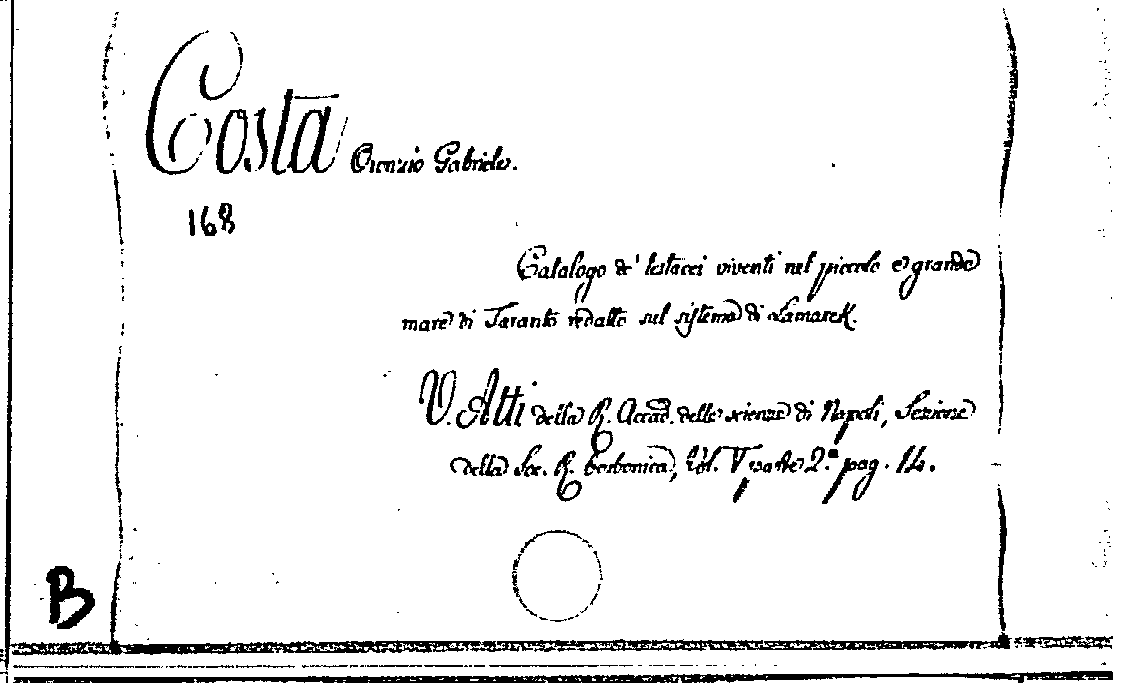 Costa Oronzio Gabriele.
168
Catalogo de' testacei viventi nel piccolo e grande
mare di Taranto redatto sul sistema di Lamarck.
V. Atti della R. Accad. delle scienze di Napoli, Sezione
della Soc. R. borbonica, Vol. V parte 2.ª pag. 14.
B